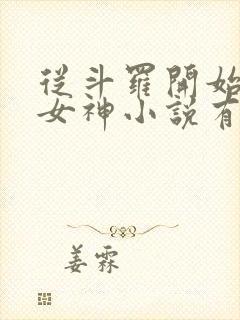 從斗羅開始
女神小說有
姜霖